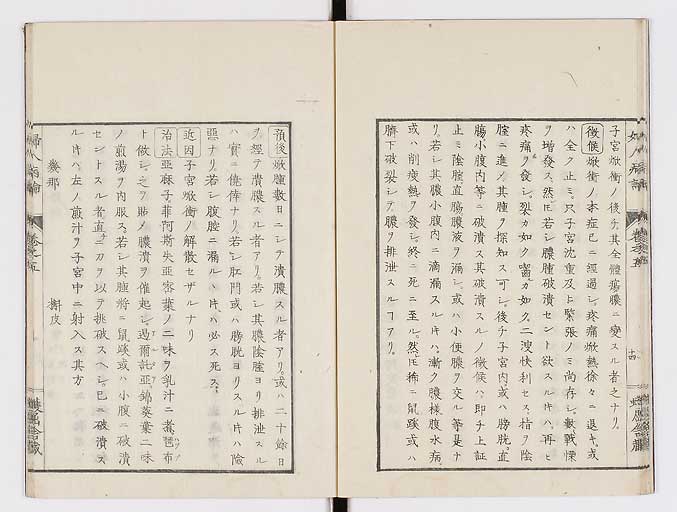 子宮焮衝ノ後チ其全體瘍膿ニ變スル者之ナリ
徴候焮衝ノ本症已ニ經過シ疼痛焮熱徐々ニ退キ或
ハ全ク止ミ只子宮沈重及ヒ緊張ノミ尚存シ數戰慄
ヲ增發ス然𪜈若シ膿腫破潰セント欲スル𪜈ハ再ヒ
疼痛ヲ發シ裂カ如ク齧カ如ク二溲快利セス指ヲ陰
腟ニ進メ其腫ヲ探知ス可シ後チ子宮内或ハ膀胱直
腸小腹内等ニ破潰ス其破潰スルノ徴候ハ即チ上証
止ミ陰腟直腸膿液ヲ漏シ或ハ小便膿ヲ交ル等是ナ
リ若シ其膿小腹内ニ滴漏スル𪜈ハ漸ク膿様腹水病
或ハ削瘦熱ヲ發シ終ニ死ニ至ル然𪜈稀ニ鼠蹊或ハ
臍下破裂シテ膿ヲ排泄スルヿアリ
預後焮腫數日ニシテ潰膿スル者アリ或ハ二十餘日
ヲ經テ潰膿スル者アリ若シ其膿陰腟ヨリ排泄スル
ハ實ニ僥倖ナリ若シ肛門或ハ膀胱ヨリスル𪜈ハ險
惡ナリ若シ腹腔ニ漏ルヽ𪜈ハ必ス死ス
近因子宮焮衝ノ解散セザルナリ
治法亞麻子菲阿斯失亞密葉ノ二味ヲ乳汁ニ煮琶布
ト做シ之ヲ貼メ膿潰ヲ催起シ過爾託亞錦葵葉二味
ノ煎湯ヲ内服ス若シ其腫將ニ鼠蹊或ハ小腹ニ破潰
セントスル者直ニ刀ヲ以テ挑破スヘシ已ニ破潰ス
ル𪜈ハ左ノ煎汁ヲ子宮中ニ射入ス其方
幾那
槲皮
婦人病論
卷之五
十四